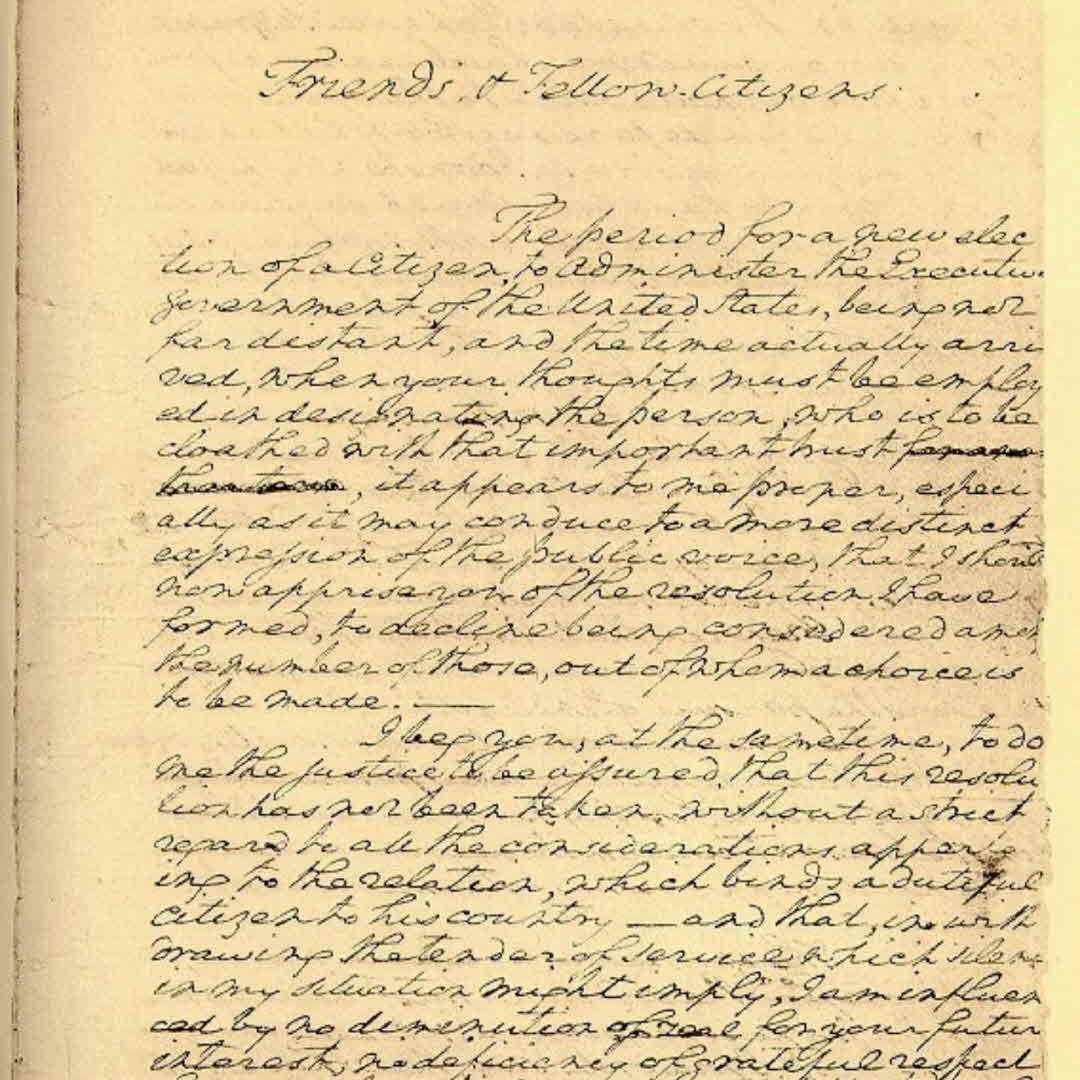 Friends, & Fellow-Citizens
The period for a new elec
tion of a Citizen, to administer the Executive
government of the United States, being not
far distant, and the time actually arri
ved, when your thoughts must be employ
ed in designating the person, who is to be
cloathed with that important trust for ano
ther term, it appears to me proper, especi
ally as it may conduce to a more distinct
expression of the public voice, that I should
now apprise you of the resolution I have
formed, to decline being considered among
the number of those, out of whom a choice is
to be made. —
I beg you, at the sametime, to do
me the justice to be assured, that this resolu
tion has not been taken, without a strict
regard to all the considerations apperta
ing to the relation, which binds a dutiful
Citizen to his country — and that, in with
drawing the tender of service which silence
in my situation might imply, I am influen
ced by no diminution of zeal for your future
interest, no deficiency of grateful respect